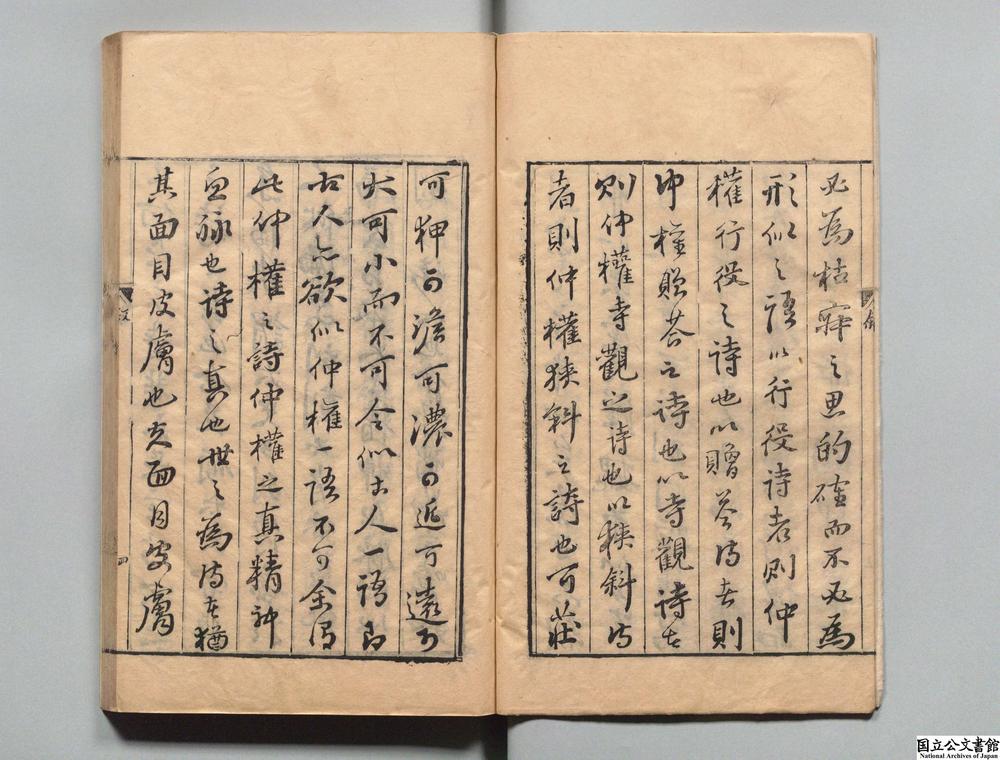 必為枯寂之思的確而不必為
形似之語以行役詩者則仲
權行役之詩也以贈答詩者則
仲權贈答之詩也以寺觀詩者
則仲權寺觀之詩也以狹斜詩
者則仲權狹斜之詩也可莊
可狎可澹可濃可近可遠可
大可小而不可令似古人一語即
古人亦欲似仲權一語不可余得
此仲權之詩仲權之真精神
血脉也詩之真也世之為詩者猶
其面目皮膚也夫面目皮膚
叙
四
国立公文書館
National Archives of Japan